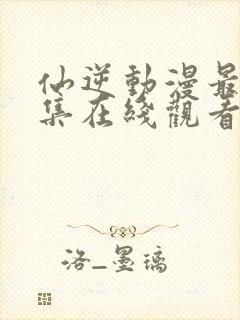 仙逆動漫最
集在綫觀看
洛_墨璃